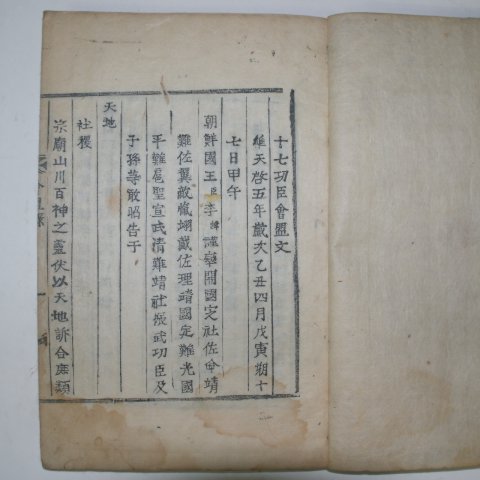 十七功臣會盟文
維天啓五年歲次乙丑四月戊寅朔十
七日甲午
朝鮮國王臣李諱謹率開國定社佐命靖
難佐翼敵愾翊戴佐理靖國定難光國
平難扈聖宣武淸難靖社振武功臣及
子孫等敢昭告于
天地
社稷
宗廟山川百神之靈伏以天地訢合庶類